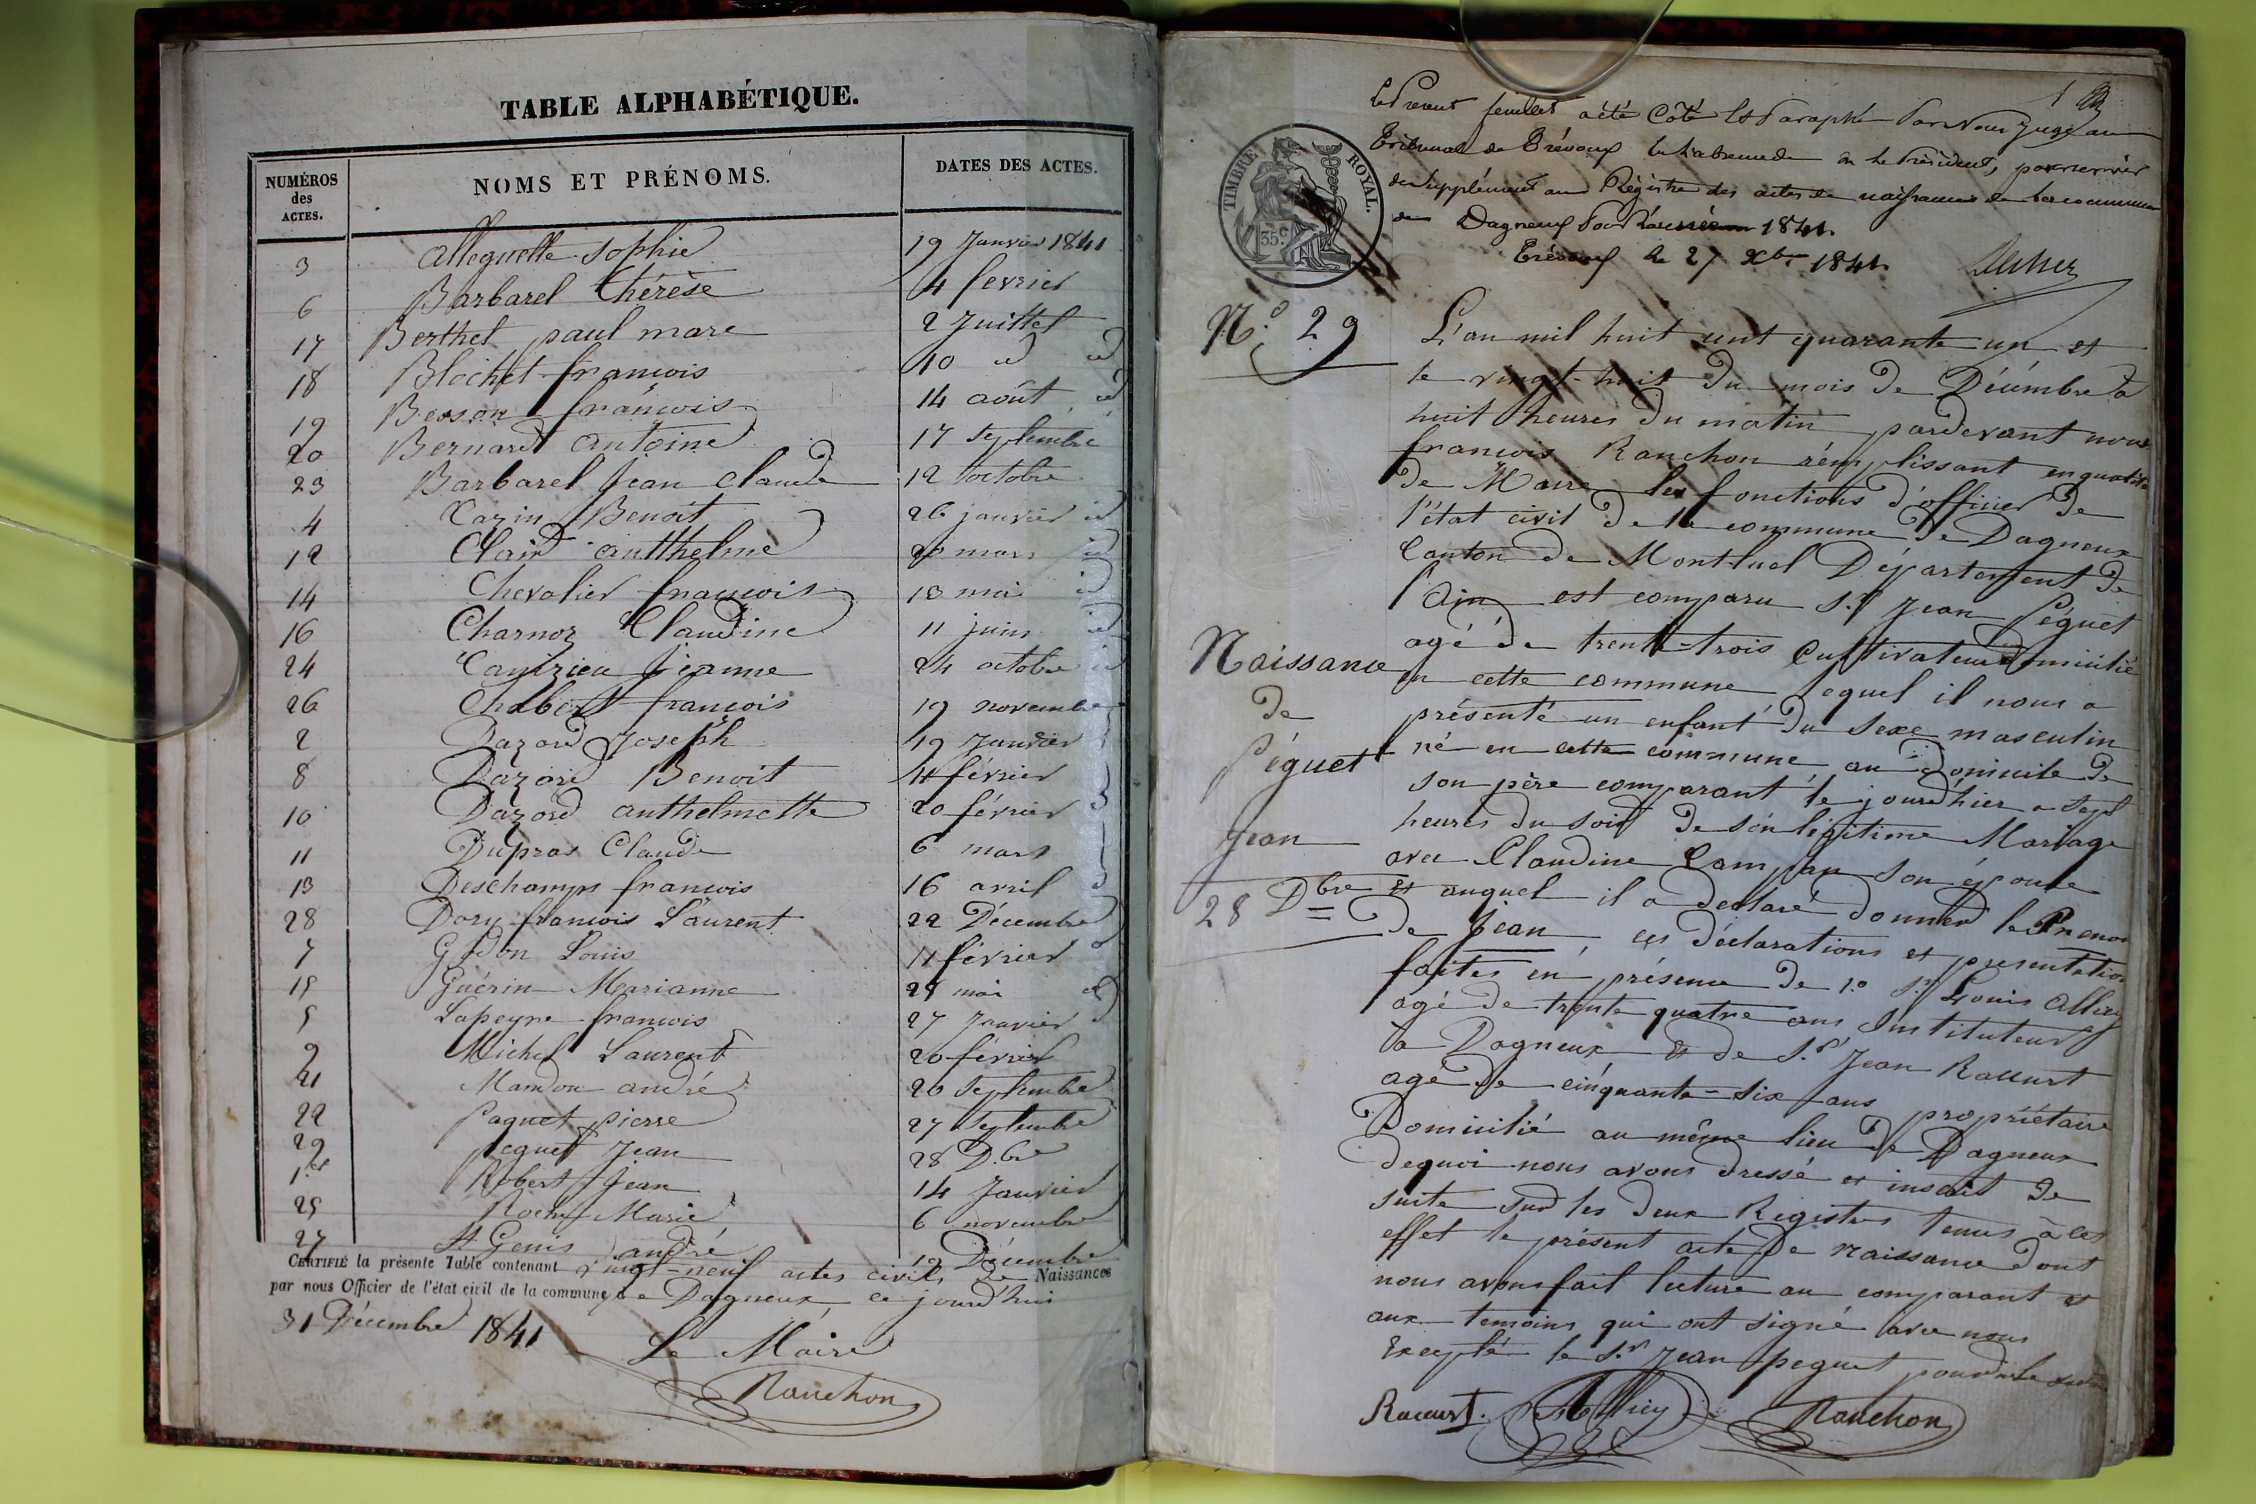 TABLE ALPHABÉTIQUE.
NUMÉROS des ACTES. NOMS ET PRÉNOMS. DATES DES ACTES.
3 Alleguette Sophie 19 Janvier 1841
6 Barbarel Thérèse 4 fevrier
17 Berthet paul marc 2 Juillet
18 Blochet francois 10 id id
19 Besson francois 14 août id
20 Bernard antoine 17 septembre
23 Barbarel Jean Claude 12 octobre
4 Cazin Benoit 26 janvier id
12 Clair anthelme 20 mars id
14 Chevalier francois 13 mai id
16 Charnoz Claudine 11 juin id
24 Jeanne 24 octobre id
26 Chabert francois 19 novembre
2 Dazord Joseph 19 Janvier
8 Dazord Benoit 11 février
10 Dazord anthelmette 20 février
11 Dupras Claude 6 mars
13 Deschamps francois 16 avril
28 Dory francois Laurent 22 Décembre
7 Godon Louis 11 février
15 Guérin Marianne 25 mai id
5 Lapeyre francois 27 Janvier
9 Michel Laurent 20 février
21 Mandon andré 20 Septembre
22 Paquet pierre 27 Septembre
29 peguet Jean 28 D.bre
1.er Robert Jean 14 Janvier
25 Roche Marie 6 novembre
27 St Genis andré 12 Décembre
CERTIFIÉ la présente Table contenant vingt-neuf actes civils de Naissances
par nous Officier de l'état civil de la commune de Dagneux, ce jourd'hui
31 Décembre 1841
Le Maire
Ranchon
1
Le Présent feuillet a été Côté Et Paraphé Par Nous Juge au
Tribunal de Trévoux En l'absence de M. le Président, pour servir
de supplément au Régistre des actes de naissances de la commune
de Dagneux Pour l'année 1841.
Trévoux le 27 Xbre 1841.
TIMBRE ROYAL.
35c
N.º 29
L'an mil huit cent quarante un et
le vingt-huit du mois de Décémbre à
huit heures du matin pardevant nous
francois Ranchon rémplissant en qualité
de Maire les fonctions d'officier de
l'état civil de la commune de Dagneux
Canton de Montluel Département de
l'Ain est comparu S.r Jean Péguet
agé de trente-trois Cultivateur domicilié
en cette commune lequel il nous a
présenté un enfant du Sexe masculin
né en cette commune au domicile de
son père comparant le jourd'hier a sept
heures du soir de son légitime Mariage
avec Claudine Campan son épouse
et auquel il a declaré donner le Prenom
de Jean, ces déclarations et presentation
faites en présence de 1.º S.r Louis Alliey
agé de trente quatre ans Instituteur
à Dagneux & de S.r Jean Racurt
agé de cinquante-six ans propriétaire
Domicilié au même lieu de Dagneux
dequoi nous avons dressé et inscrit de
suite sur les deux Registres tenus à cet
effet le présent acte de naissance dont
nous avons fait lecture au comparant et
aux temoins qui ont signé avec nous
Excepté le S.r Jean peguet
Naissance
de
Péguet
Jean
28 Dbre
Racurt. Alliey Ranchon